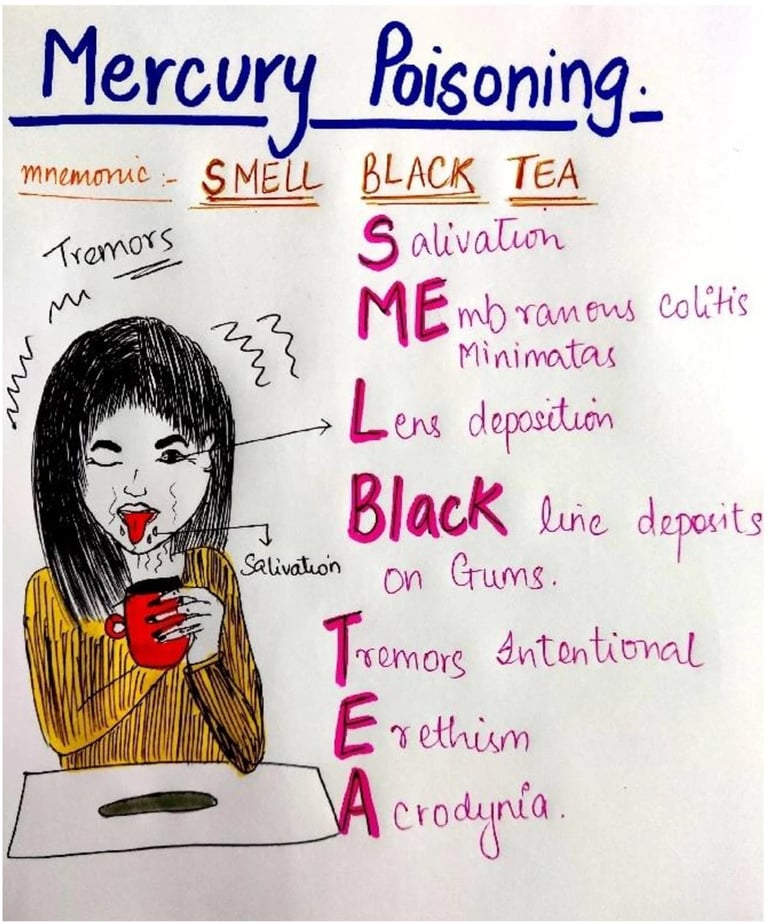 Mercury Poisoning.
mnemonic :- SMELL BLACK TEA
Tremors
Salivation
MEmbranous colitis
Minimatas
Lens deposition
Black line deposits
on Gums.
Salivation
Tremors Intentional
Erethism
Acrodynia.